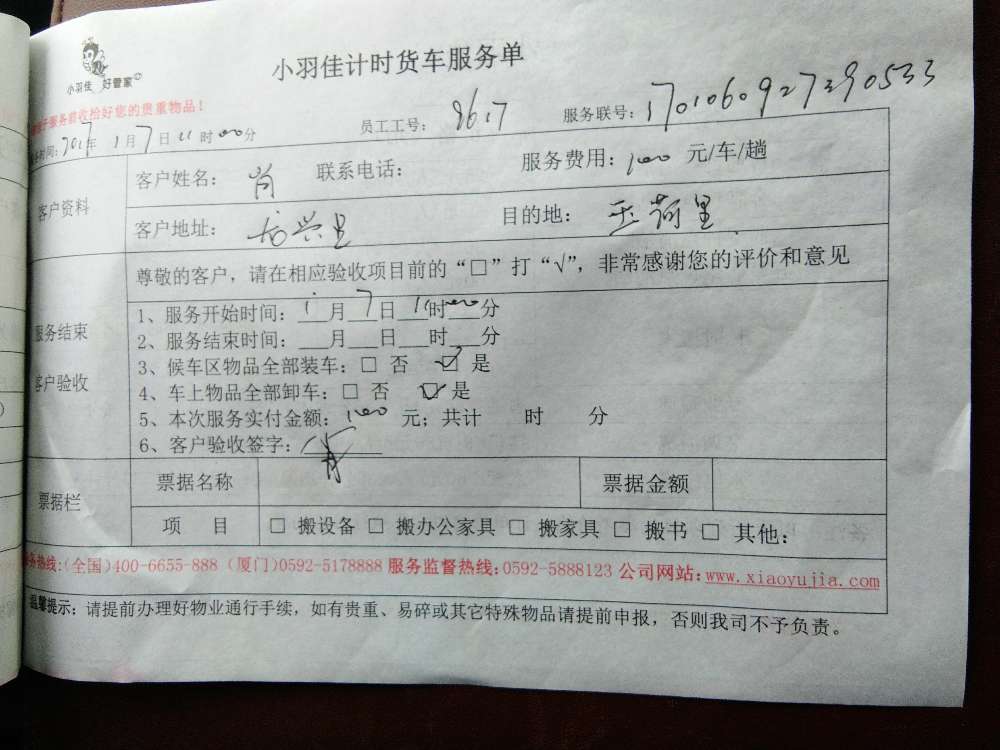 小羽佳 好管家
小羽佳计时货车服务单
服务前收恰好您的贵重物品！
时间：2017年1月7日11时00分 员工工号： 服务联号：170106092729053
客户资料
客户姓名：肖 联系电话： 服务费用：100元/车/趟
客户地址： 目的地：
尊敬的客户，请在相应验收项目前的“□”打“√”，非常感谢您的评价和意见
服务结束
客户验收
1、服务开始时间：1月7日11时00分
2、服务结束时间：___月___日___时___分
3、候车区物品全部装车：□ 否 ☑ 是
4、车上物品全部卸车：□ 否 ☑ 是
5、本次服务实付金额：100元；共计 时 分
6、客户验收签字：肖
票据栏
票据名称 票据金额
项 目 □ 搬设备 □ 搬办公家具 □ 搬家具 □ 搬书 □ 其他：
务热线：(全国)400-6655-888 (厦门)0592-5178888 服务监督热线：0592-5888123 公司网站：www.xiaoyujia.com
温馨提示：请提前办理好物业通行手续，如有贵重、易碎或其它特殊物品请提前申报，否则我司不予负责。